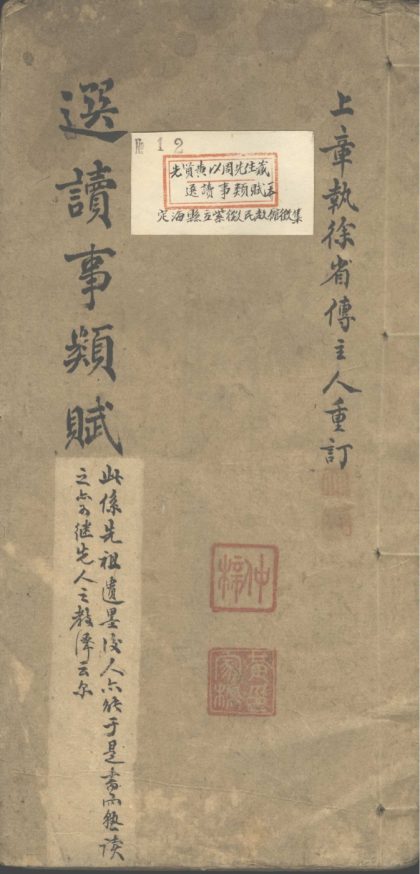 上章執徐省傳主人重訂
№ 12
先賢黃以周先生藏
選讀事類賦
定海縣立紫微民教館徵集
選讀事類賦
此係先祖遺墨後人亦能于是書而熟读
之亦可继先人之教澤云尔